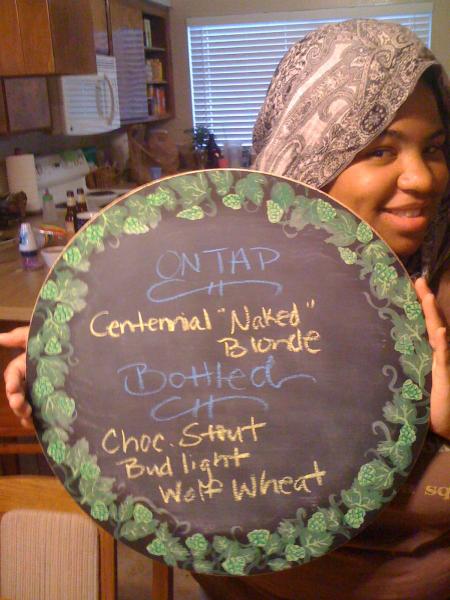 ON TAP
Centennial "Naked"
Blonde
Bottled
Choc. Stout
Bud light
Wolf Wheat